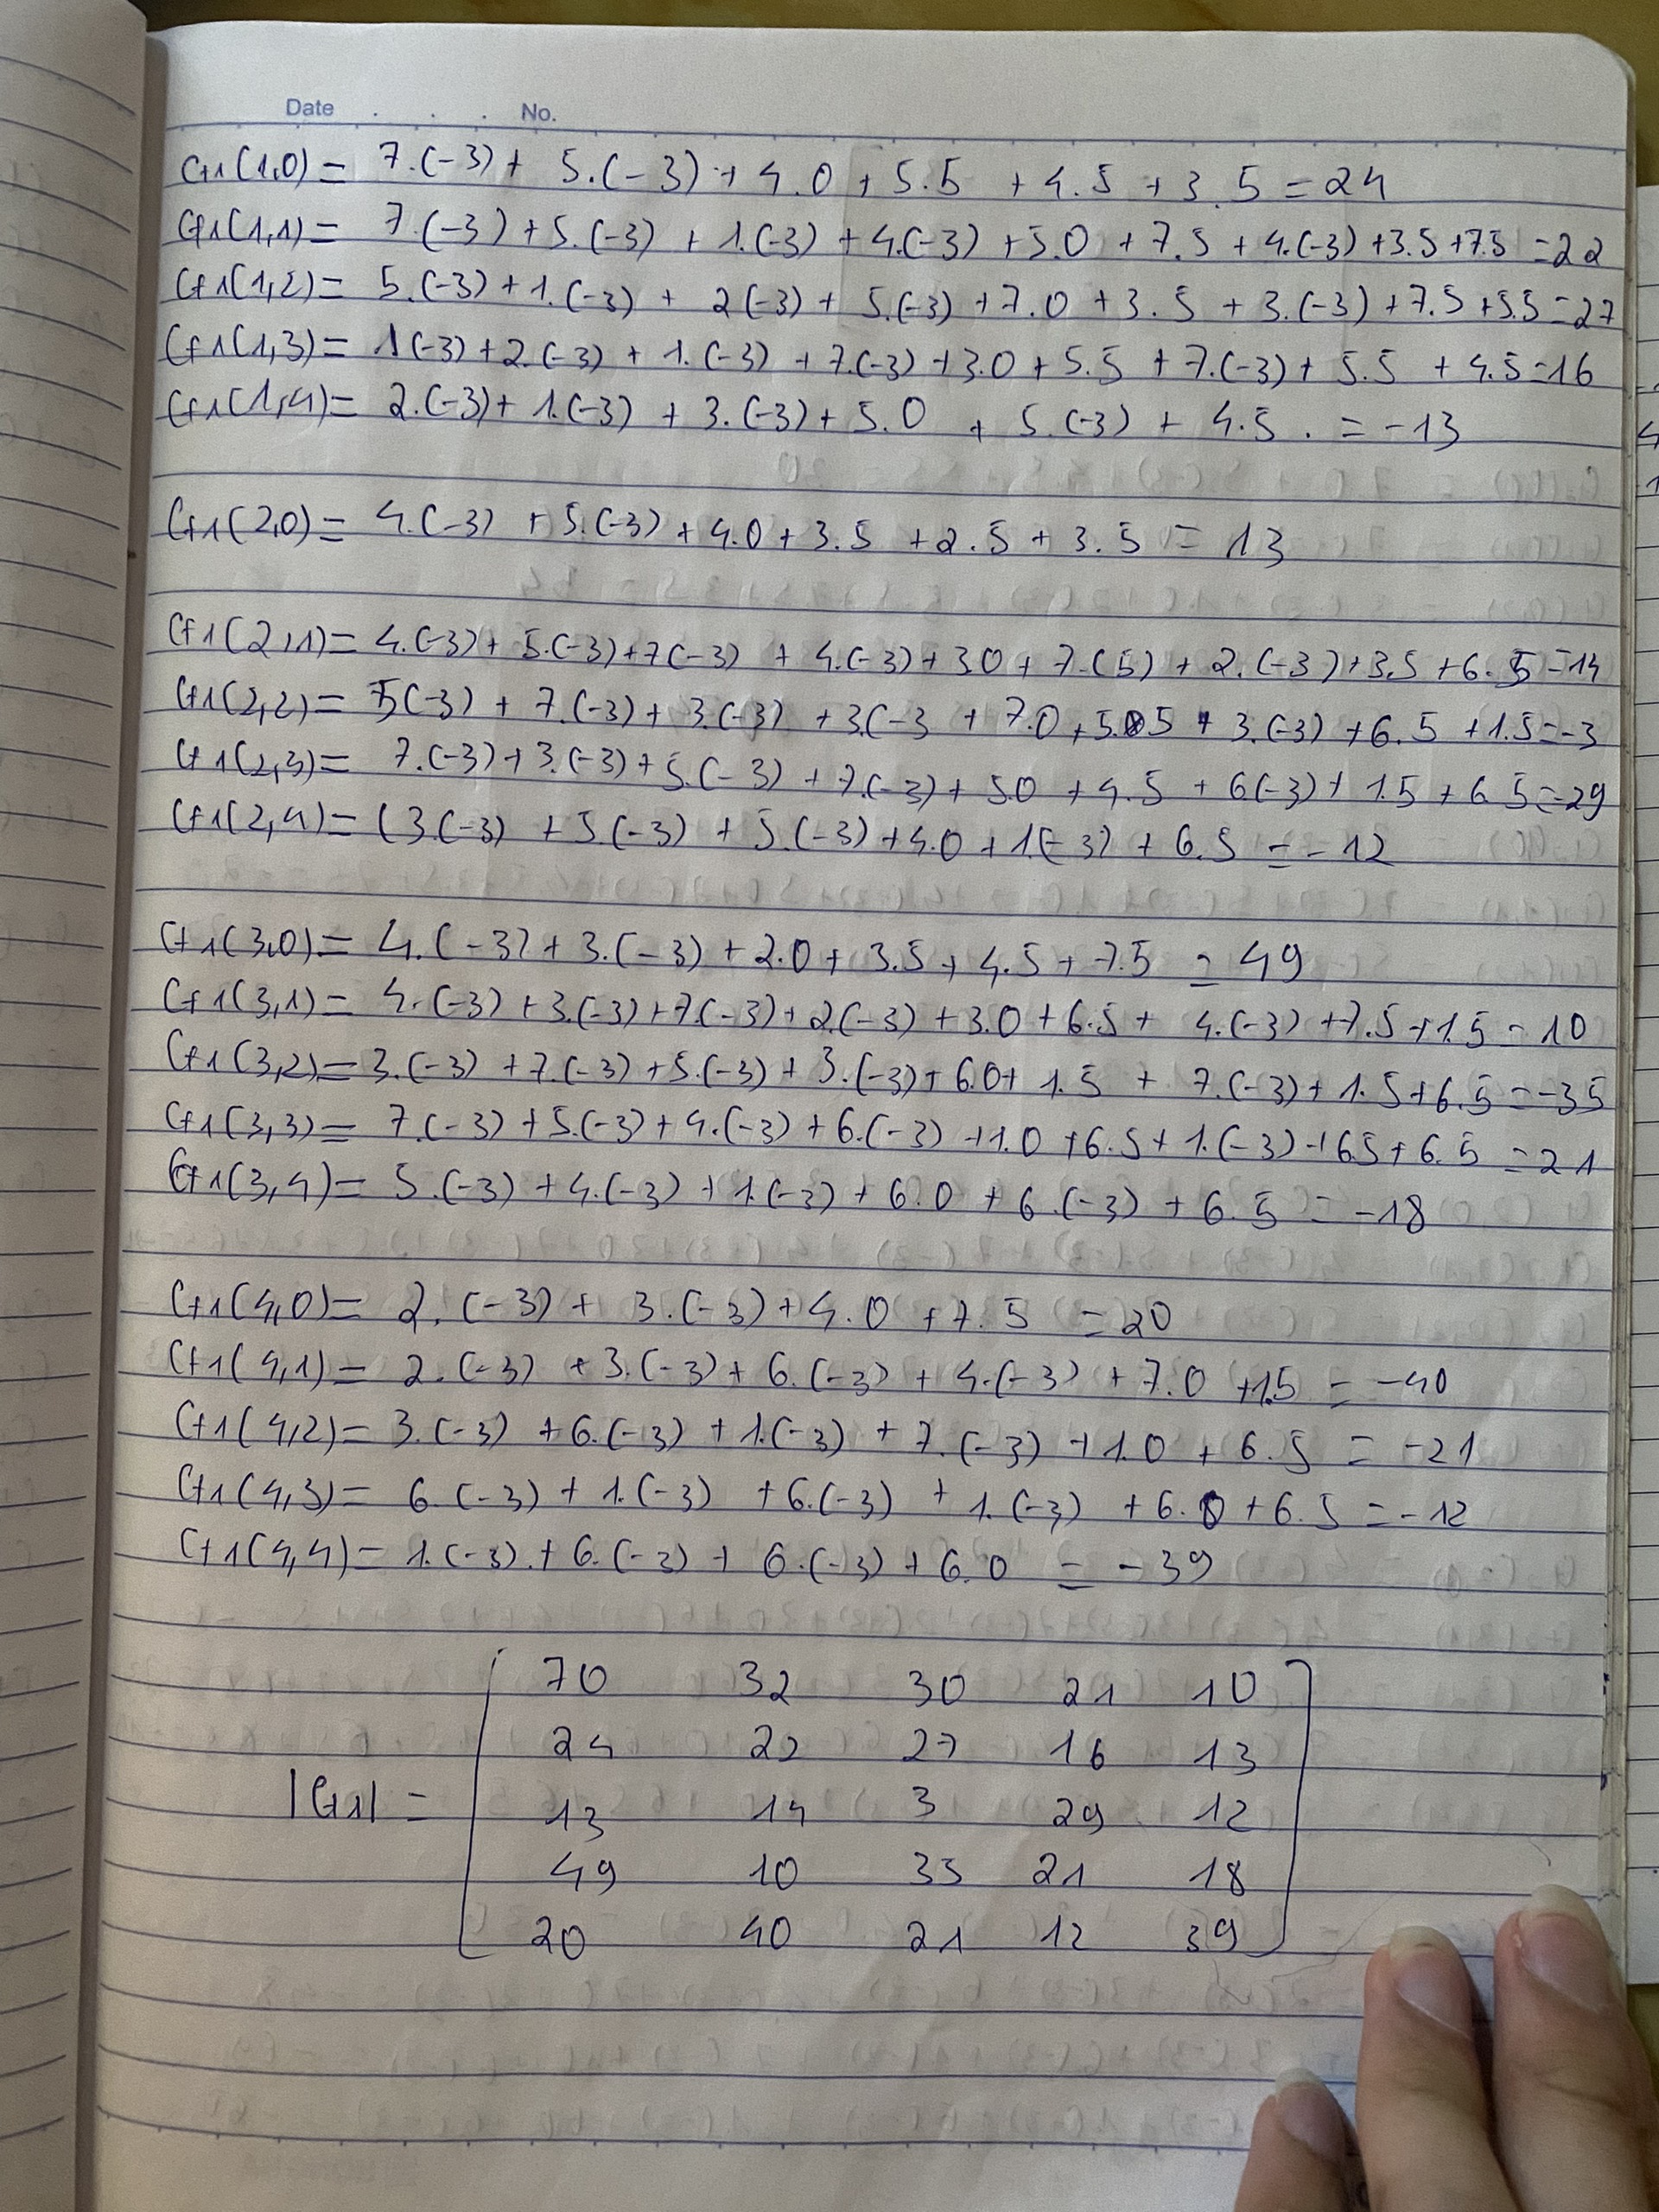 Date . . . No.
G1(1,0) = 7.(-3) + 5.(-3) + 4.0 + 5.5 + 4.5 + 3.5 = 24
G1(1,1) = 7.(-3) + 5.(-3) + 1.(-3) + 4.(-3) + 5.0 + 7.5 + 4.(-3) + 3.5 + 7.5 = 22
G1(1,2) = 5.(-3) + 1.(-3) + 2(-3) + 5.(-3) + 7.0 + 3.5 + 3.(-3) + 7.5 + 5.5 = 27
G1(1,3) = 1(-3) + 2.(-3) + 1.(-3) + 7.(-3) + 3.0 + 5.5 + 7.(-3) + 5.5 + 4.5 = 16
G1(1,4) = 2.(-3) + 1.(-3) + 3.(-3) + 5.0 + 5.(-3) + 4.5 . = -13
G1(2,0) = 4.(-3) + 5.(-3) + 4.0 + 3.5 + 2.5 + 3.5 = 13
G1(2,1) = 4.(-3) + 5.(-3) + 7(-3) + 4.(-3) + 3.0 + 7.(5) + 2.(-3) + 3.5 + 6.5 = 14
G1(2,2) = 5(-3) + 7.(-3) + 3.(-3) + 3.(-3 + 7.0 + 5.5 + 3.(-3) + 6.5 + 1.5 = -3
G1(2,3) = 7.(-3) + 3.(-3) + 5.(-3) + 7.(-3) + 5.0 + 4.5 + 6(-3) + 1.5 + 6.5 = -29
G1(2,4) = (3.(-3) + 5.(-3) + 5.(-3) + 4.0 + 1.(-3) + 6.5 = -12
G1(3,0) = 4.(-3) + 3.(-3) + 2.0 + 3.5 + 4.5 + 7.5 = 49
G1(3,1) = 4.(-3) + 3.(-3) + 7.(-3) + 2.(-3) + 3.0 + 6.5 + 4.(-3) + 7.5 + 1.5 = 10
G1(3,2) = 3.(-3) + 7.(-3) + 5.(-3) + 3.(-3) + 6.0 + 1.5 + 7.(-3) + 1.5 + 6.5 = -35
G1(3,3) = 7.(-3) + 5.(-3) + 4.(-3) + 6.(-3) + 1.0 + 6.5 + 1.(-3) + 6.5 + 6.5 = 21
G1(3,4) = 5.(-3) + 4.(-3) + 1.(-3) + 6.0 + 6.(-3) + 6.5 = -18
G1(4,0) = 2.(-3) + 3.(-3) + 4.0 + 7.5 = 20
G1(4,1) = 2.(-3) + 3.(-3) + 6.(-3) + 4.(-3) + 7.0 + 1.5 = -40
G1(4,2) = 3.(-3) + 6.(-3) + 1.(-3) + 7.(-3) + 1.0 + 6.5 = -21
G1(4,3) = 6.(-3) + 1.(-3) + 6.(-3) + 1.(-3) + 6.0 + 6.5 = -12
G1(4,4) = 1.(-3) + 6.(-3) + 6.(-3) + 6.0 = -39
70 32 30 21 10
24 22 27 16 13
|G1| = 13 14 3 29 12
49 10 35 21 18
20 40 21 12 39